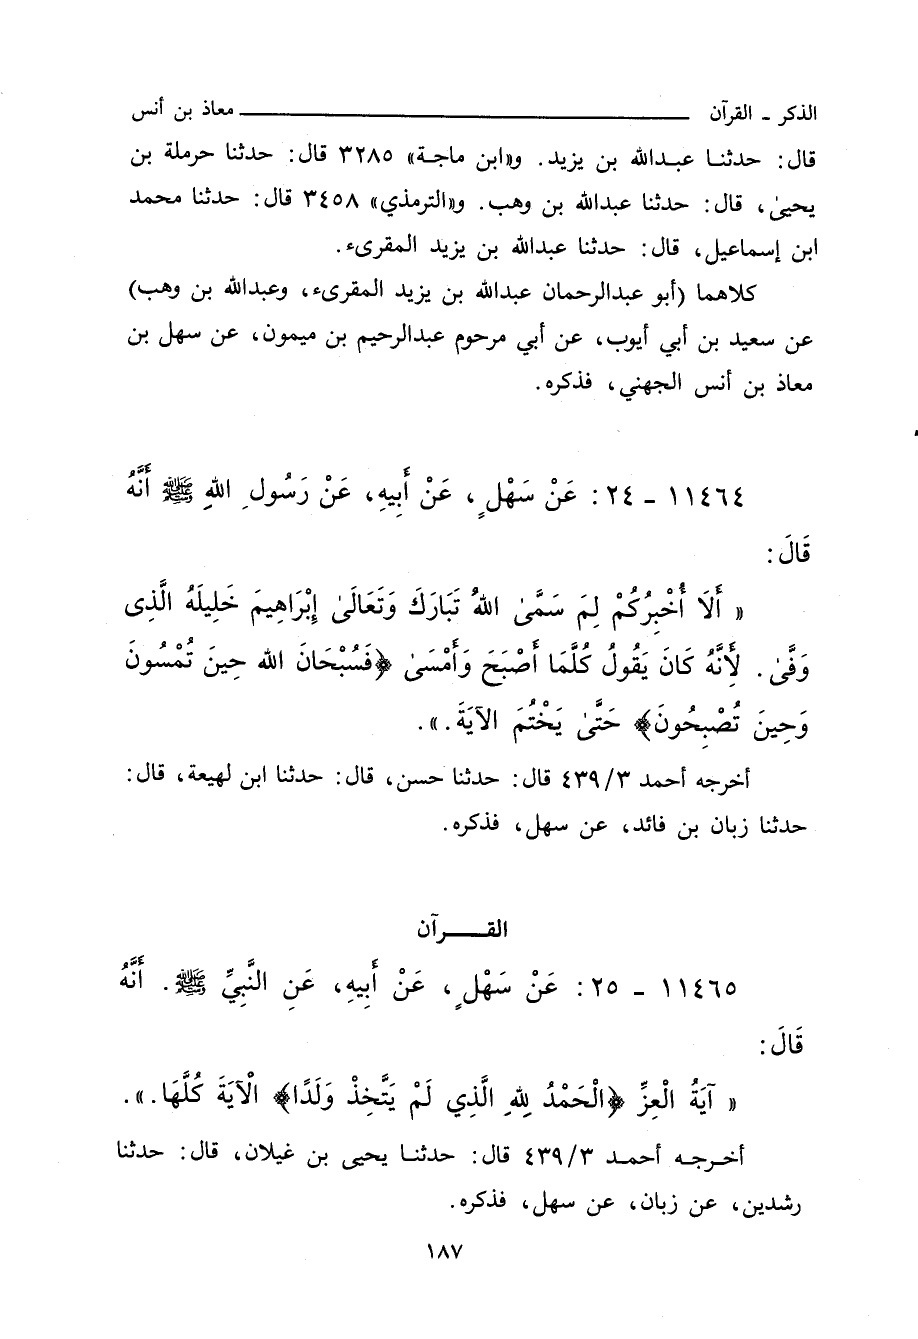 الذكر ـ القرآن ـــــــــــــــــــــــــــــ معاذ بن أنس
قال: حدثنا عبدالله بن يزيد. و«ابن ماجة» ٣٢٨٥ قال: حدثنا حرملة بن
يحيىٰ، قال: حدثنا عبدالله بن وهب. و«الترمذي» ٣٤٥٨ قال: حدثنا محمد
ابن إسماعيل، قال: حدثنا عبدالله بن يزيد المقرىء.
كلاهما (أبو عبدالرحمان عبدالله بن يزيد المقرىء، وعبدالله بن وهب)
عن سعيد بن أبي أيوب، عن أبي مرحوم عبدالرحيم بن ميمون، عن سهل بن
معاذ بن أنس الجهني، فذكره.
١١٤٦٤ ـ ٢٤: عَنْ سَهْلٍ، عَنْ أَبِيهِ، عَنْ رَسُولِ اللهِ ﷺ أَنَّهُ
قَالَ:
« أَلَا أُخْبِرُكُمْ لِمَ سَمَّىٰ اللهُ تَبَارَكَ وَتَعَالَىٰ إِبْرَاهِيمَ خَلِيلَهُ الَّذِى
وَفَّىٰ. لأَِنَّهُ كَانَ يَقُولُ كُلَّمَا أَصْبَحَ وَأَمْسَىٰ ﴿فَسُبْحَانَ الله حِينَ تُمْسُونَ
وَحِينَ تُصْبِحُونَ﴾ حَتَّىٰ يَخْتُمَ الآيَةَ.».
أخرجه أحمد ٤٣٩/٣ قال: حدثنا حسن، قال: حدثنا ابن لهيعة، قال:
حدثنا زبان بن فائد، عن سهل، فذكره.
القـــــرآن
١١٤٦٥ ـ ٢٥: عَنْ سَهْلٍ، عَنْ أَبِيهِ، عَنِ النَّبِيِّ ﷺ. أَنَّهُ
قَالَ:
« آيَةُ الْعِزِّ ﴿الْحَمْدُ لِلهِ الَّذِي لَمْ يَتَّخِذْ وَلَدًا﴾ الْآيَةَ كُلَّهَا.».
أخرجه أحمد ٤٣٩/٣ قال: حدثنا يحيى بن غيلان، قال: حدثنا
رشدين، عن زبان، عن سهل، فذكره.
١٨٧